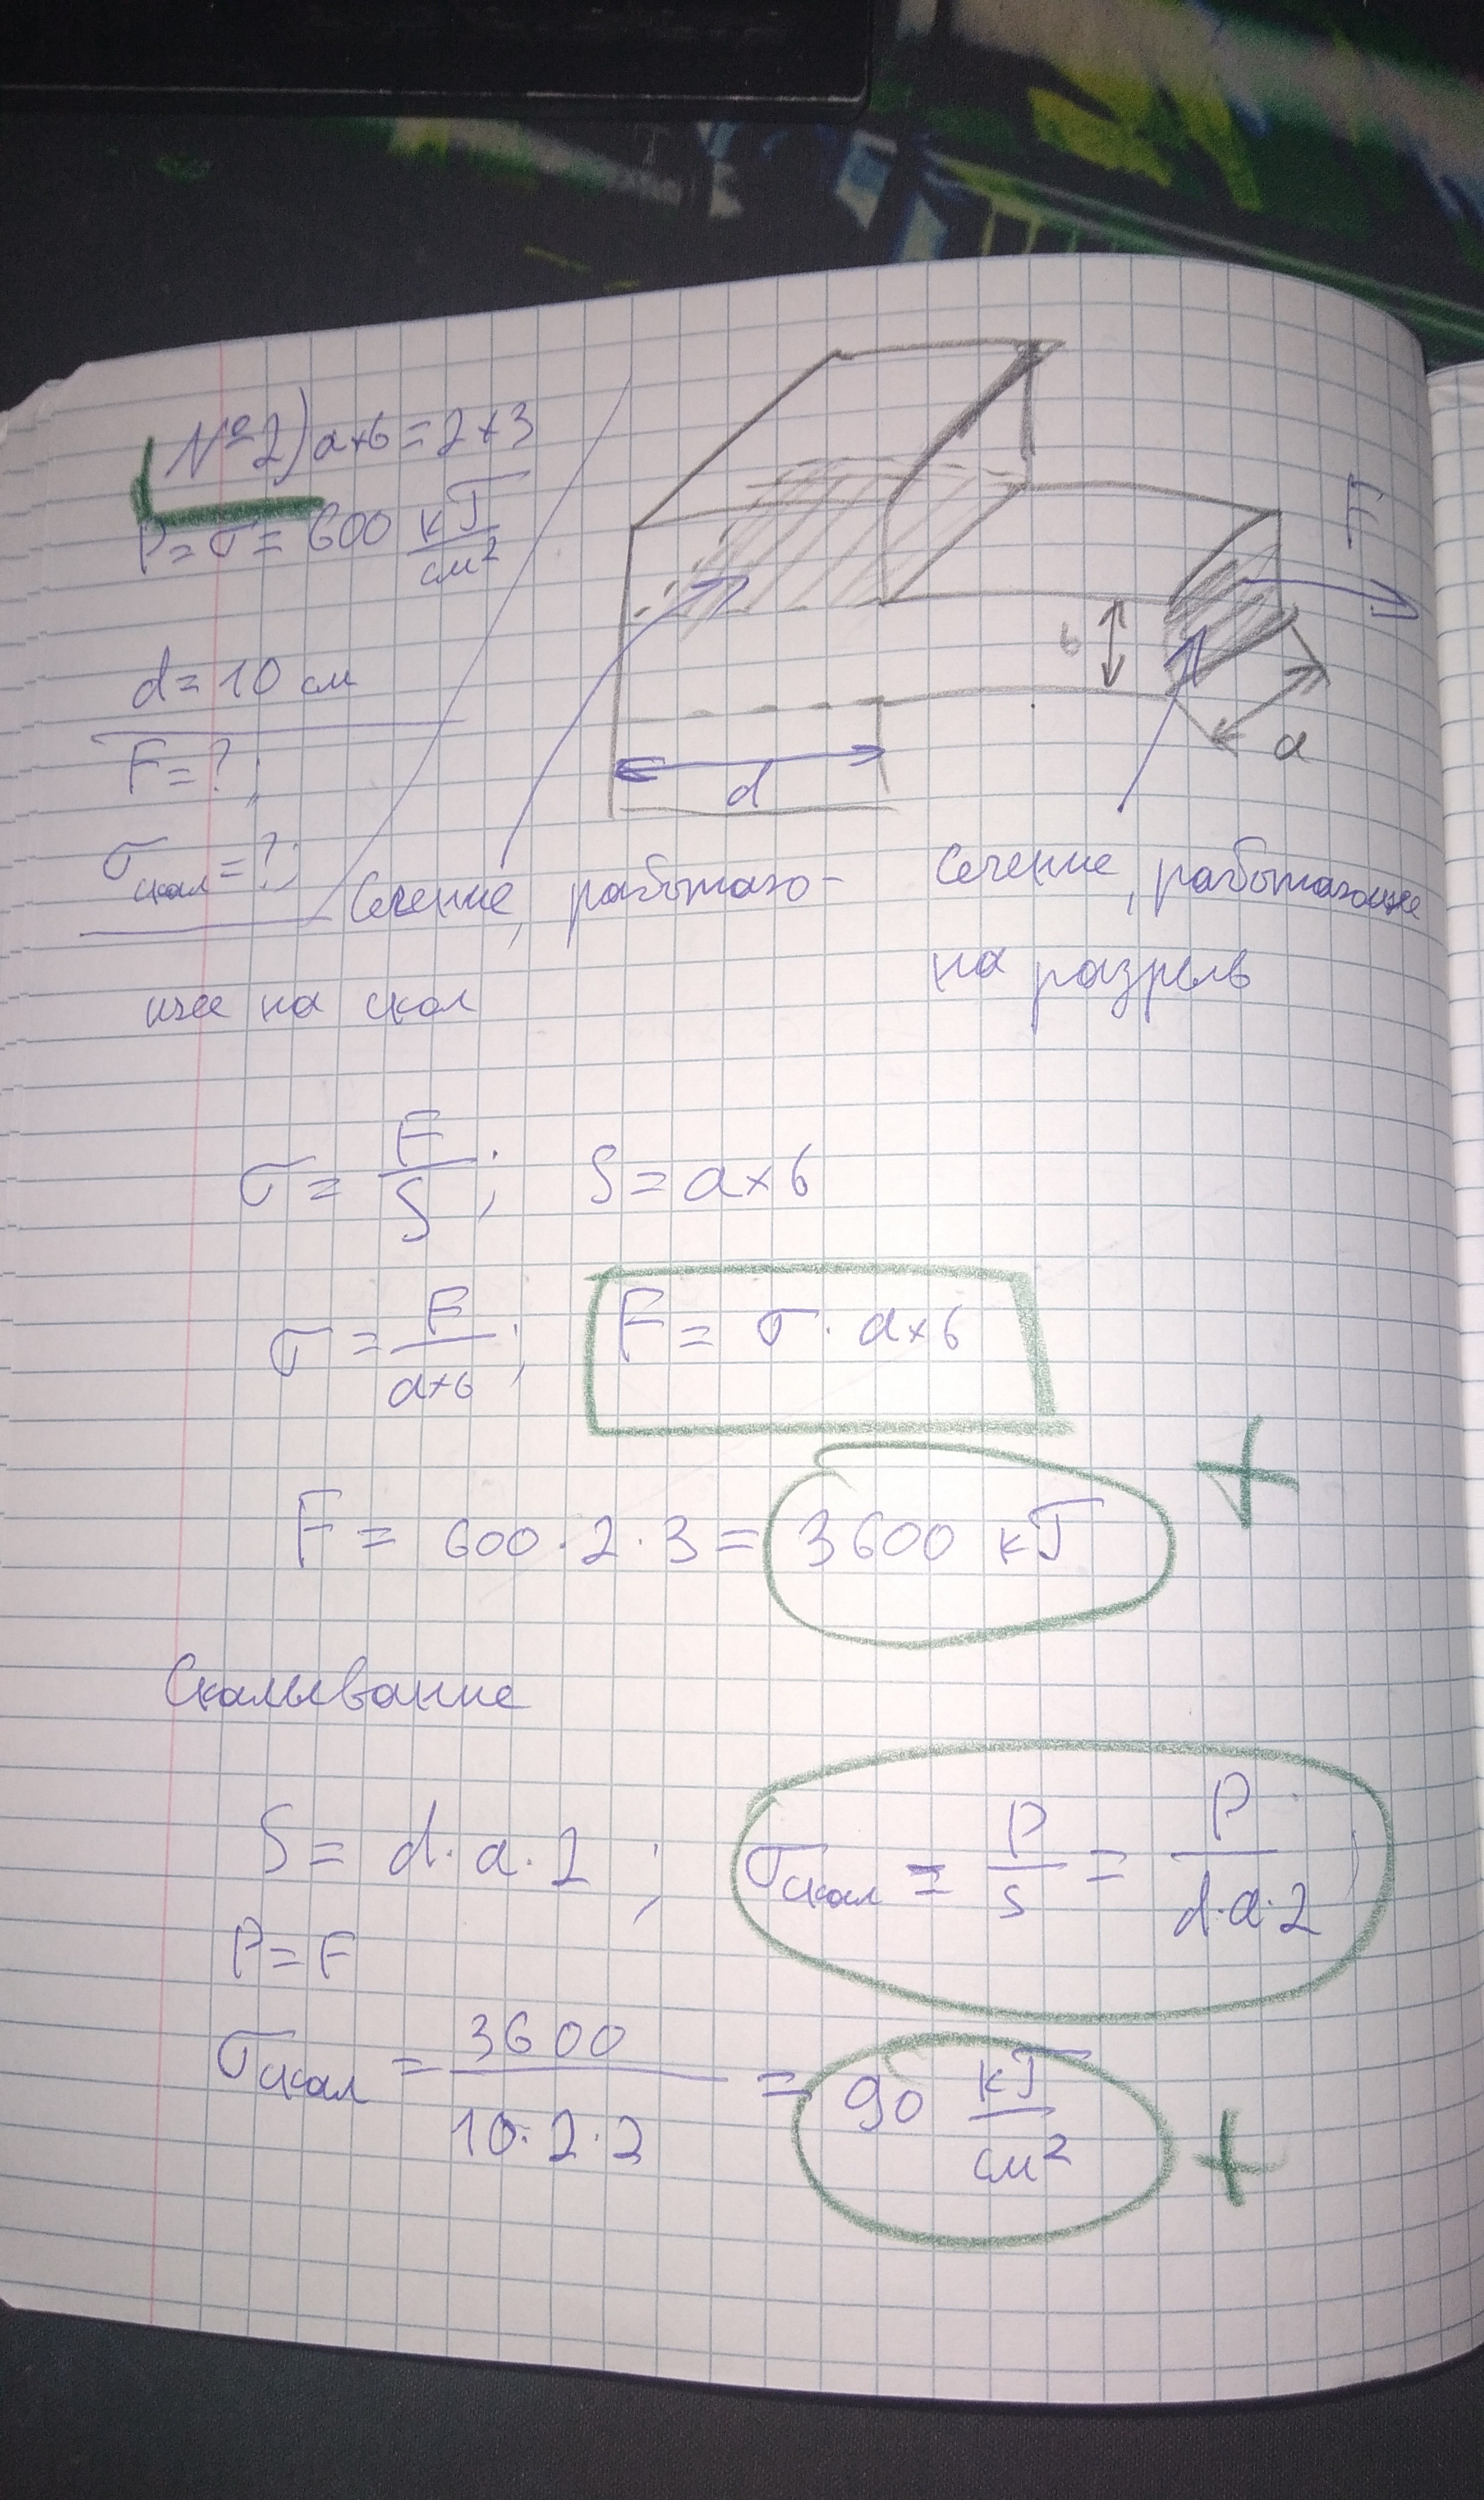 №2) a×b=2×3
P=σ=600 кГ/см²
d=10 см
F=?;
σскал=?;
F
b
a
d
Сечение, работаю-
щее на скол
Сечение, работающее
на разрыв
σ = F/S; S = a×b
σ = F/a×b; F = σ·a×b
F = 600·2·3 = 3600 кГ
+
Скалывание
S = d·a·2; σскал = P/S = P/d·a·2;
P=F
σскал = 3600/10·2·2 = 90 кГ/см²
+